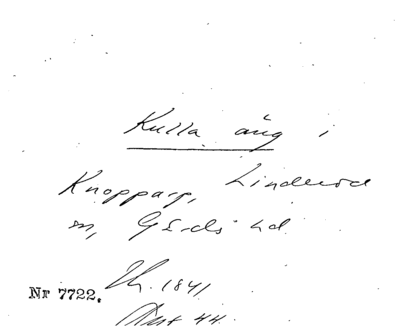 Kulla äng i
Knopparp, Linderöd
sn, Gärds hd.
Nr 7722. 1841
44.